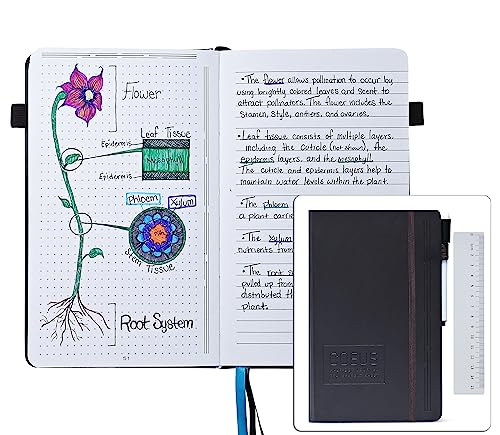 Flower
Leaf Tissue
Epidermis
Mesophyll
Epidermis
Phloem
Xylum
Pith
Stem Tissue
Root System
51
• The flower allows pollination to occur by
using brightly colored leaves and scent to
attract pollinators. The flower includes the
Stamen, Style, anthers, and ovaries.
• Leaf tissue consists of multiple layers.
including the cuticle (not shown), the
epidermis layers, and the mesophyll.
The cuticle and epidermis layers help to
maintain water levels within the plant.
• The phloem
a plant carri
• The xylum
nutrients from
• The root s
pulled up from
distributed th
plant.
COEUS